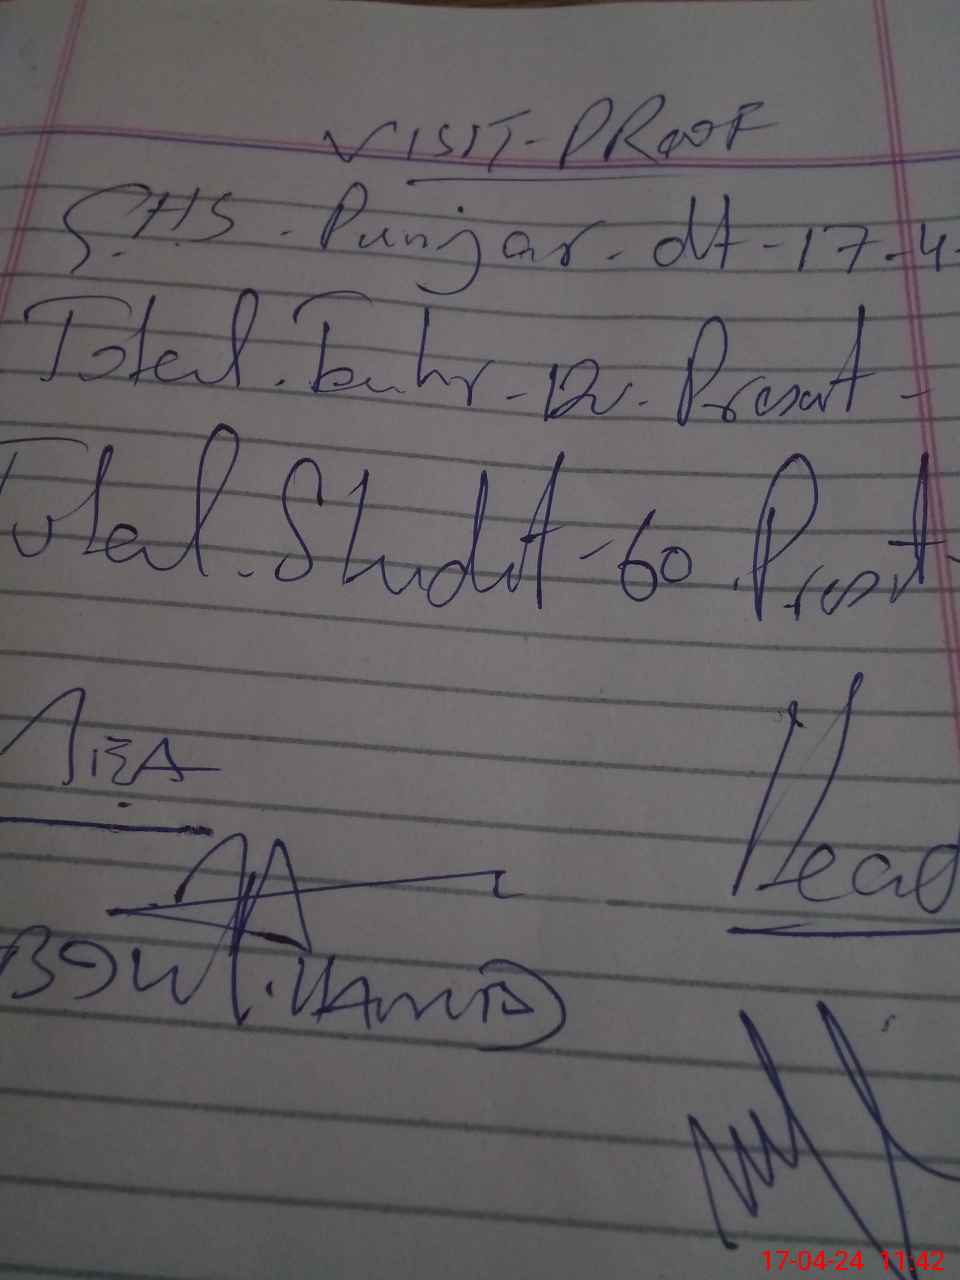 VISIT-PROOF
G.H.S. Punjar. dt-17-4-
Total. - 12. Present -
Total. Studt - 60. Presnt-
Head
HAMID
17-04-24 11:42